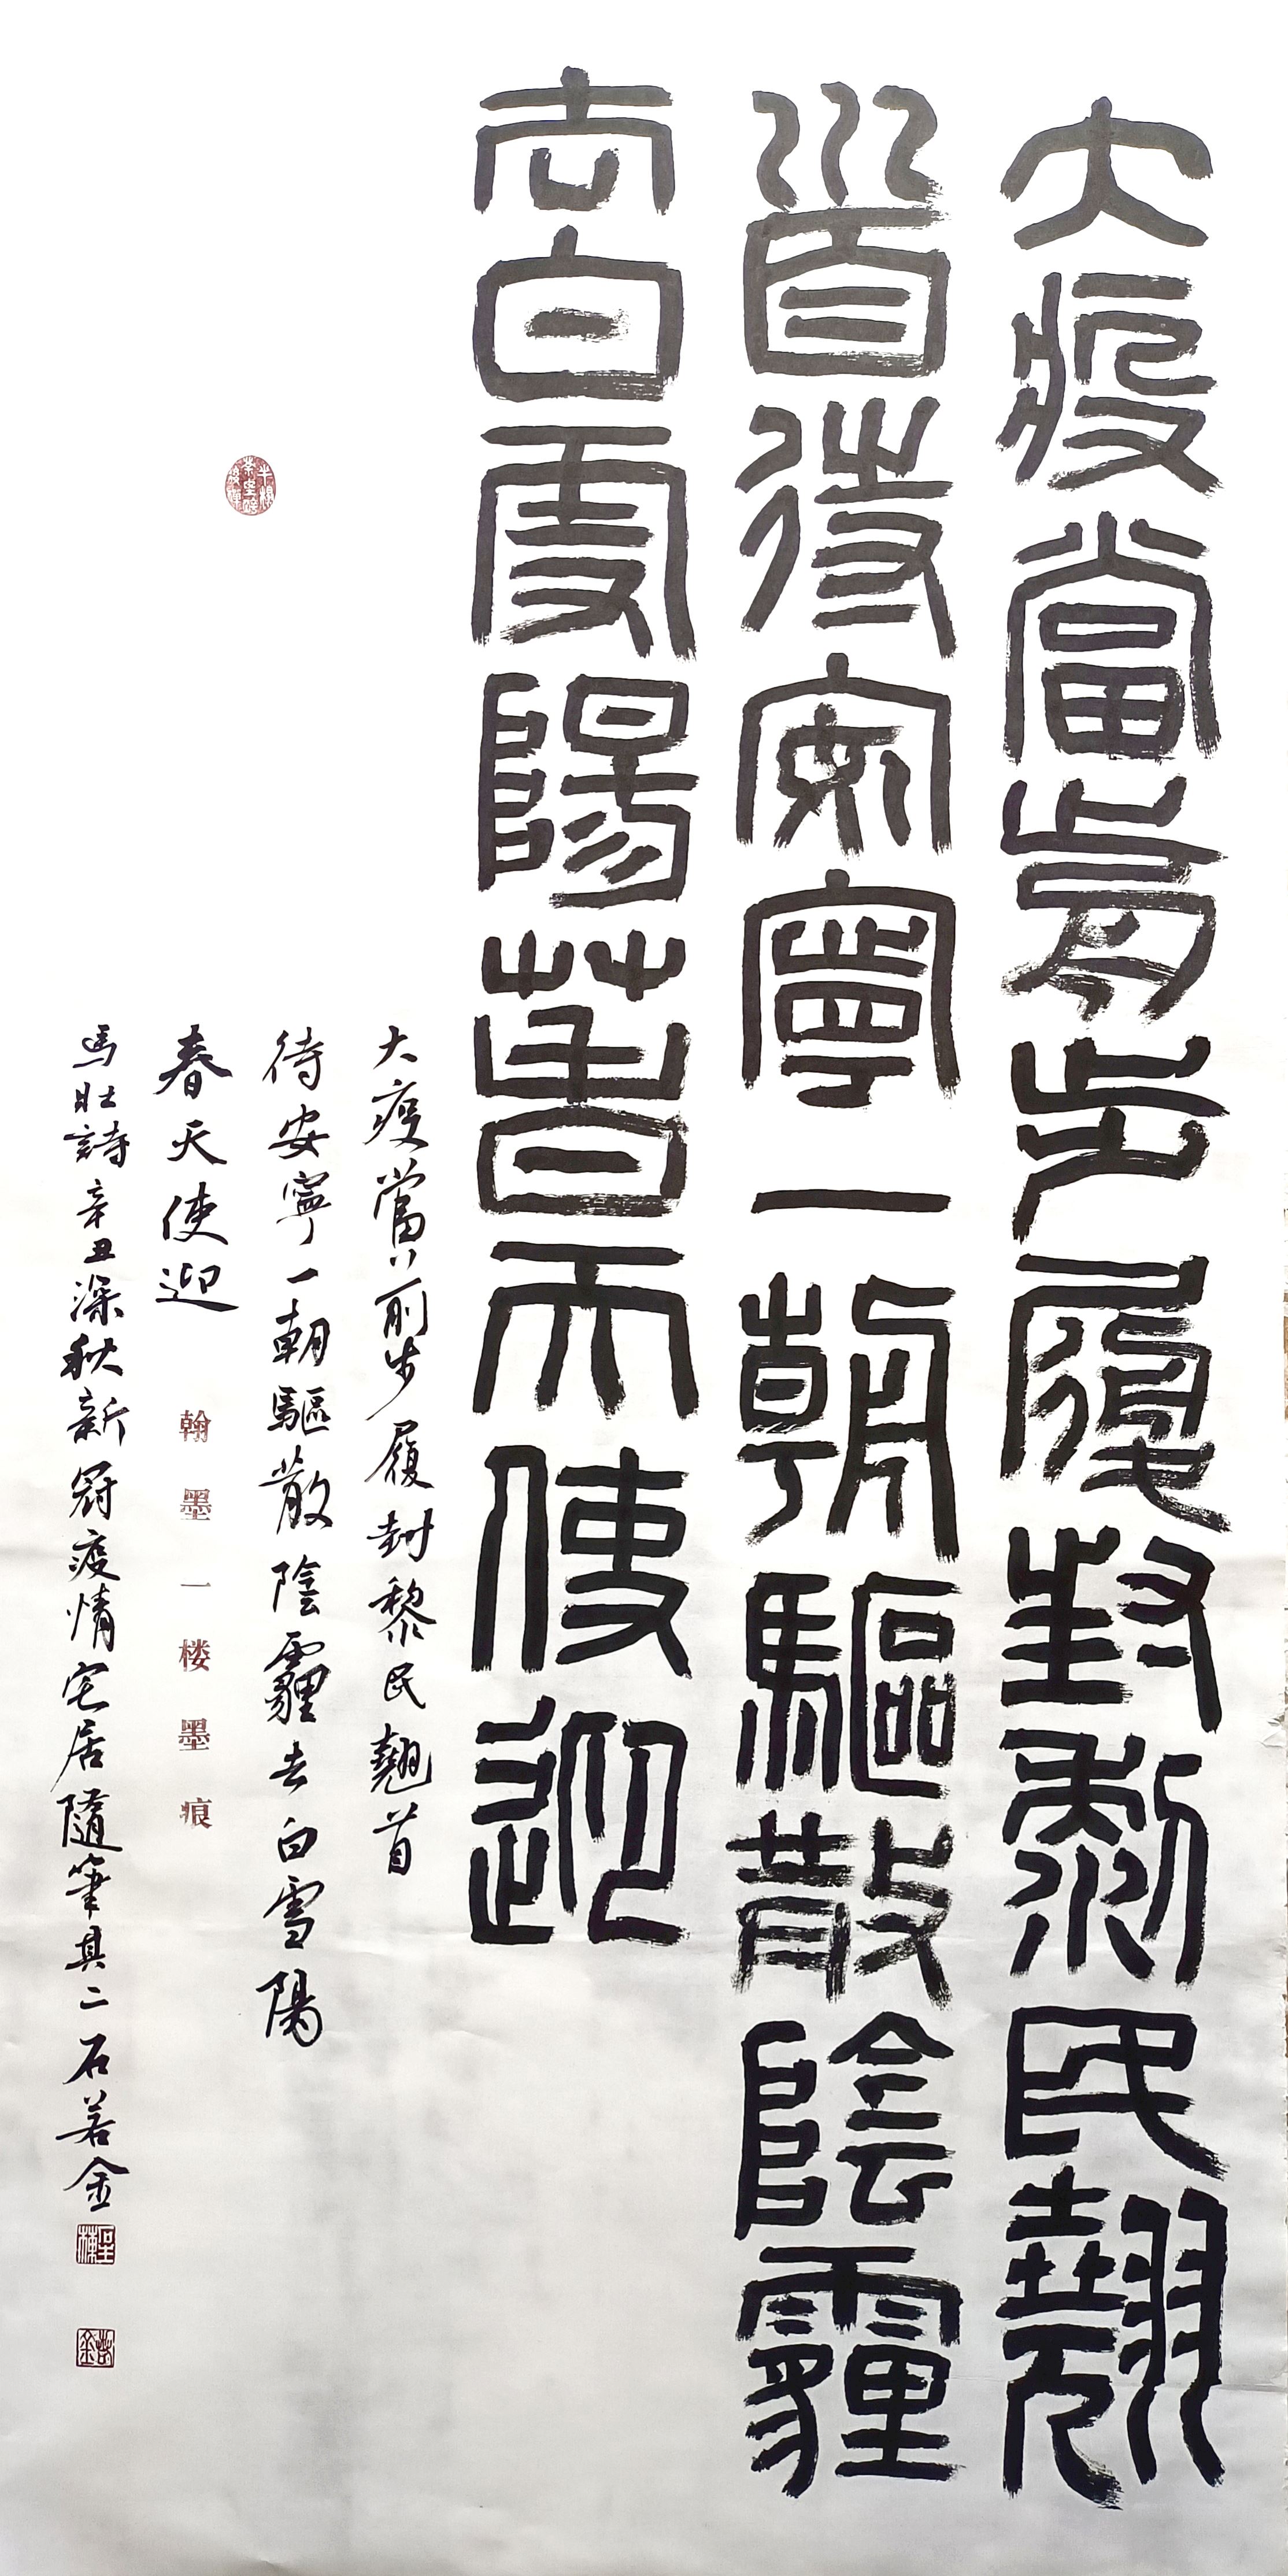 大疫當前步履封黎民翹
首待安寧一朝驅散陰霾
去白雪陽春天使迎
大疫當前步履封黎民翹首
待安寧一朝驅散陰霾去白雪陽
春天使迎
翰墨一楼墨痕
馬壯詩辛丑深秋新冠疫情宅居隨筆其二石若金
若金